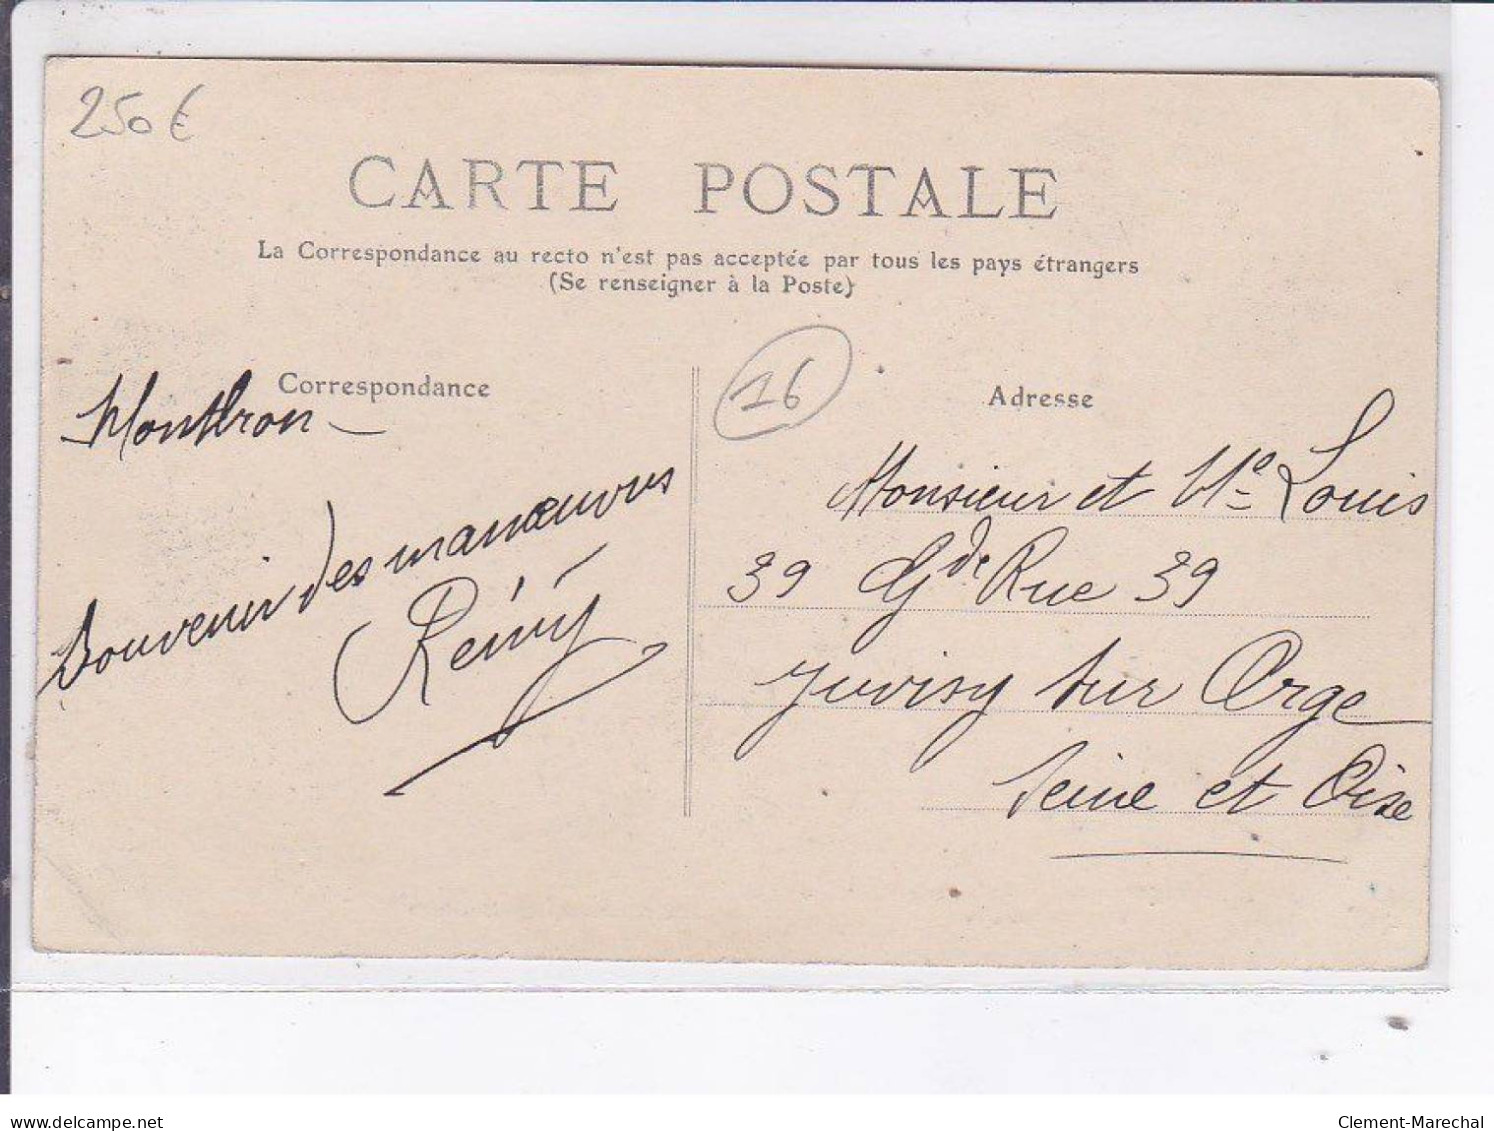 250€
CARTE POSTALE
La Correspondance au recto n'est pas acceptée par tous les pays étrangers
(Se renseigner à la Poste)
Correspondance
Montbron –
Souvenir des manœuvres
Rémy
16
Adresse
Monsieur et Me Louis
39 Gde Rue 39
Juvisy sur Orge
Seine et Oise
delcampe.net
Clement-Marechal